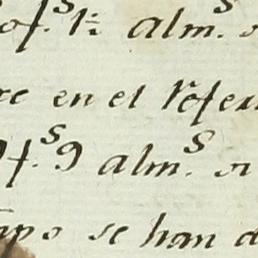 of.s 1½ alm.s
re en el Refer
9f.s 9 alm.s
se han d